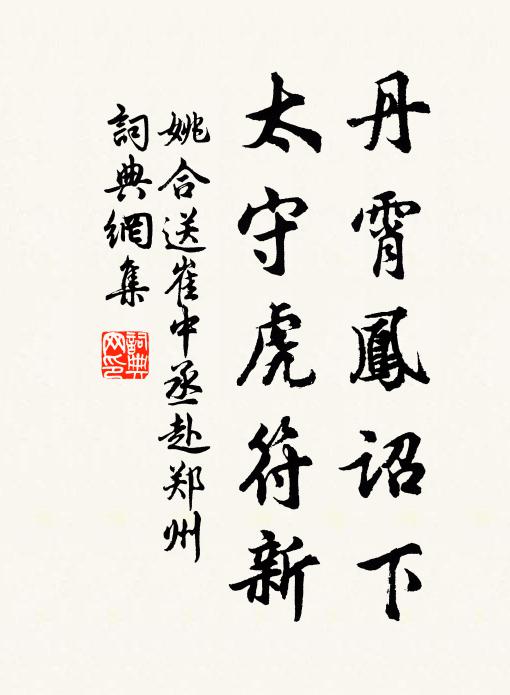 丹霄鳳詔下
太守虎符新
姚合送崔中丞赴郑州
詞典網集
詞典網印